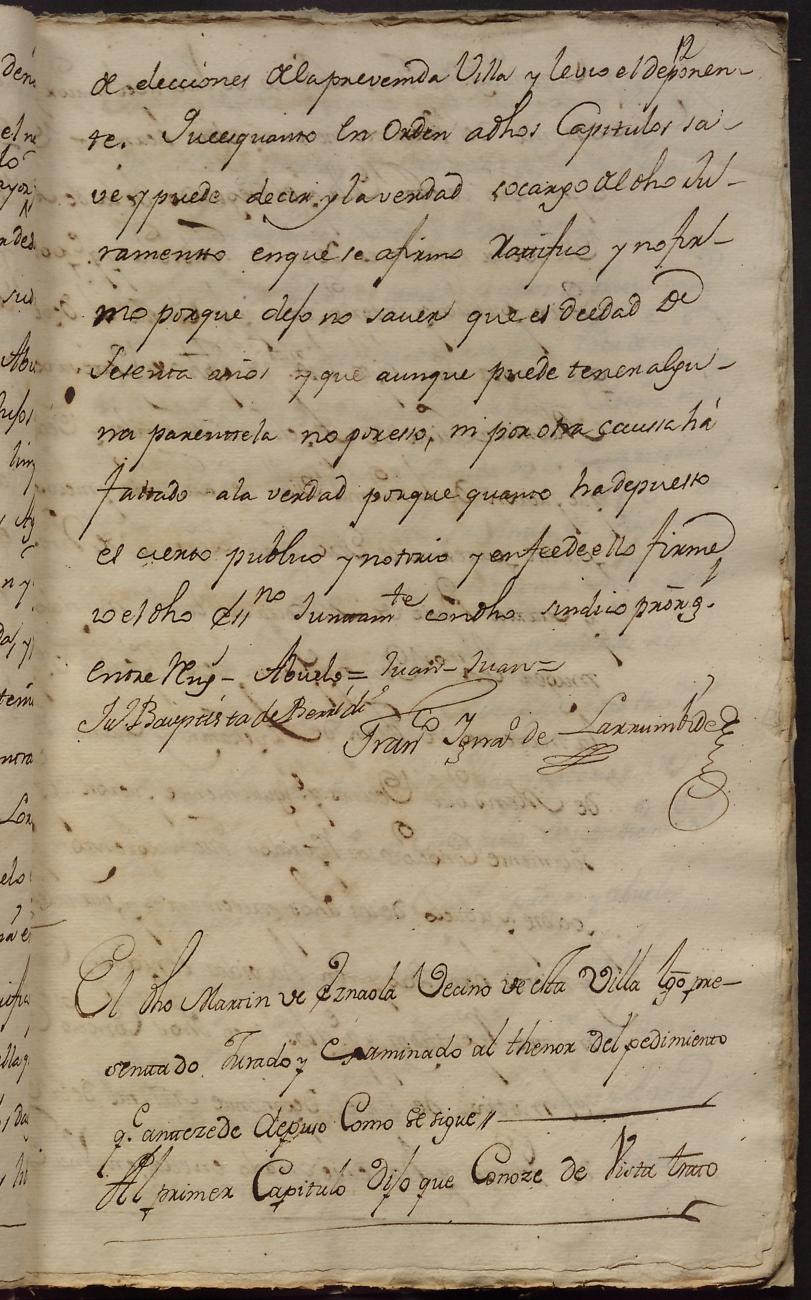 12
de elecciones de la prevenida Villa y le vio el deponen-
te. Que es quanto en Orden a dhos Capitulos sa-
ve y puede decir y la verdad so cargo del dho Ju-
ramento en que se afirmo Rattifico y no fir-
mo porque dijo no saver que es de edad de
sesenta años y que aunque puede tener algu-
na parentela no por esso, ni por otra caussa há
faltado a la verdad porque quanto ha depuesto
es cierto publico y notorio y en fee de ello firme
io el dho ess.no Juntam.te con dho sindico pror. g.l
entre Reng.s - Abuelo = Juan - Juan =
Ju.n Bauptista de
Fran.co Ignaº de Larrumbide
El dho Martin de Eznaola Vecino de esta Villa tgo pre-
sentado Jurado y examinado al thenor del pedimiento
q.e antezede depuso Como se sigue //
Al primer Capitulo Dijo que Conoze de Vista trato